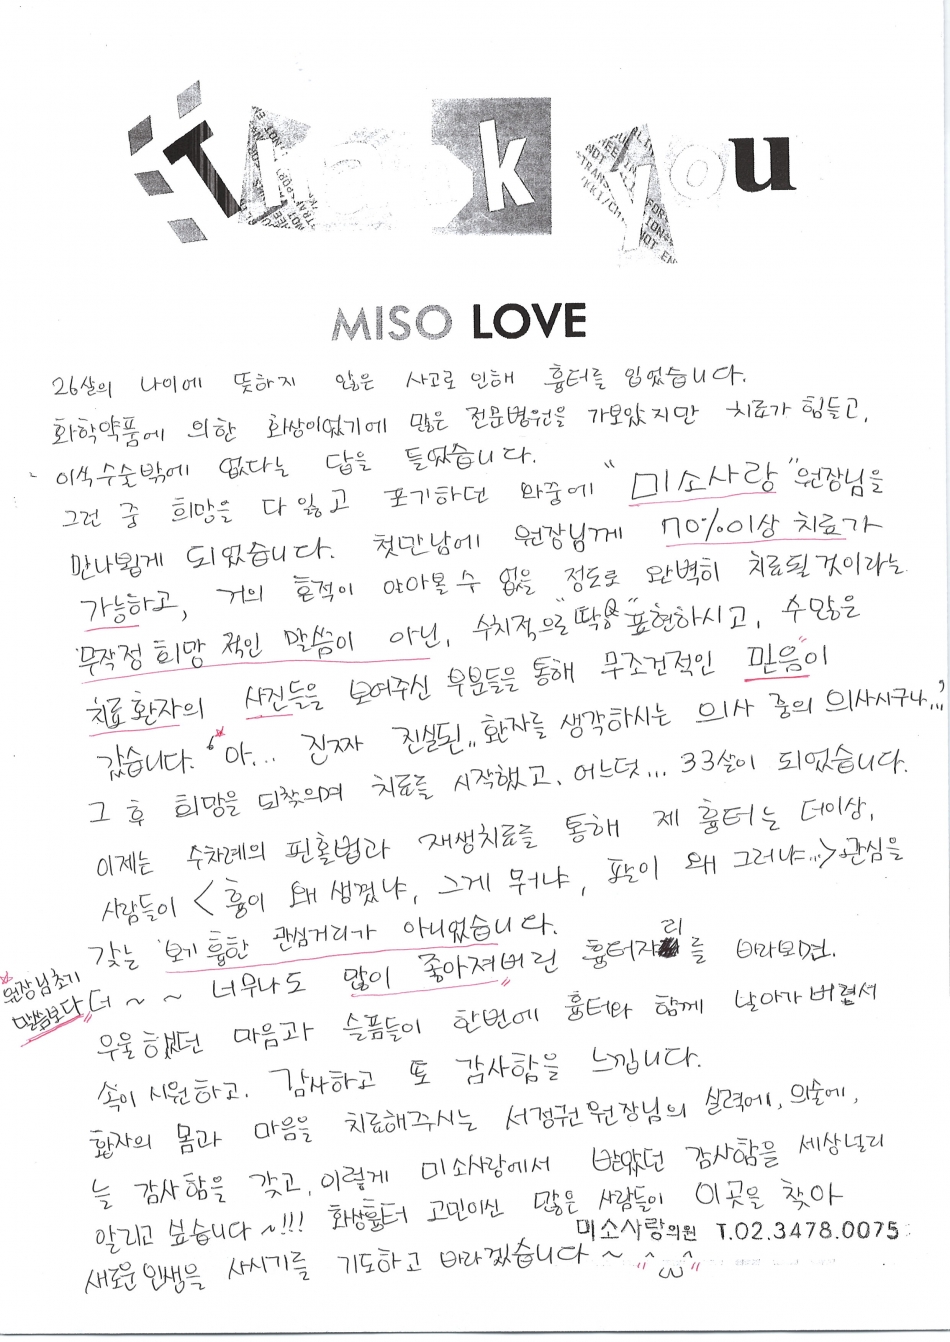 Thank you
MISO LOVE
26살의 나이에 뜻하지 않은 사고로 인해 흉터를 입었습니다.
화학약품에 의한 화상이었기에 많은 전문병원을 가보았지만 치료가 힘들고,
이식수술밖에 없다는 답을 들었습니다.
그런 중 희망을 다 잃고 포기하던 와중에 "미소사랑" 원장님을
만나뵙게 되었습니다. 첫만남에 원장님께 70%이상 치료가
가능하고, 거의 흔적이 알아볼 수 없을 정도로 완벽히 치료될것이라는
무작정 희망 적인 말씀이 아닌, 수치적으로 "딱" 표현하시고, 수많은
치료 환자의 사진들을 보여주신 부분들을 통해 무조건적인 믿음이
갔습니다. '아... 진짜 진실된,, 환자를 생각하시는 의사 중의 의사시구나...'
그 후 희망을 되찾으며 치료를 시작했고, 어느덧... 33살이 되었습니다.
이제는 수차례의 핀홀법과 재생치료를 통해 제 흉터는 더이상,
사람들이 <흉이 왜 생겼냐, 그게 뭐냐, 팔이 왜 그러냐...> 관심을
갖는 보기 흉한 관심거리가 아니었습니다.
원장님 초기
말씀보다 더~~ 너무나도 많이 좋아져버린 흉터자리를 바라보면,
우울했던 마음과 슬픔들이 한번에 흉터와 함께 날아가 버렸서
속이 시원하고, 감사하고 또 감사함을 느낍니다.
환자의 몸과 마음을 치료해주시는 서정권원장님의 실력에, 의술에,
늘 감사함을 갖고, 이렇게 미소사랑에서 받았던 감사함을 세상널리
알리고 싶습니다~!!! 화상흉터 고민이신 많은 사람들이 이곳을 찾아
미소사랑의원 T.02.3478.0075
새로운 인생을 사시기를 기도하고 바라겠습니다~ ^ω^